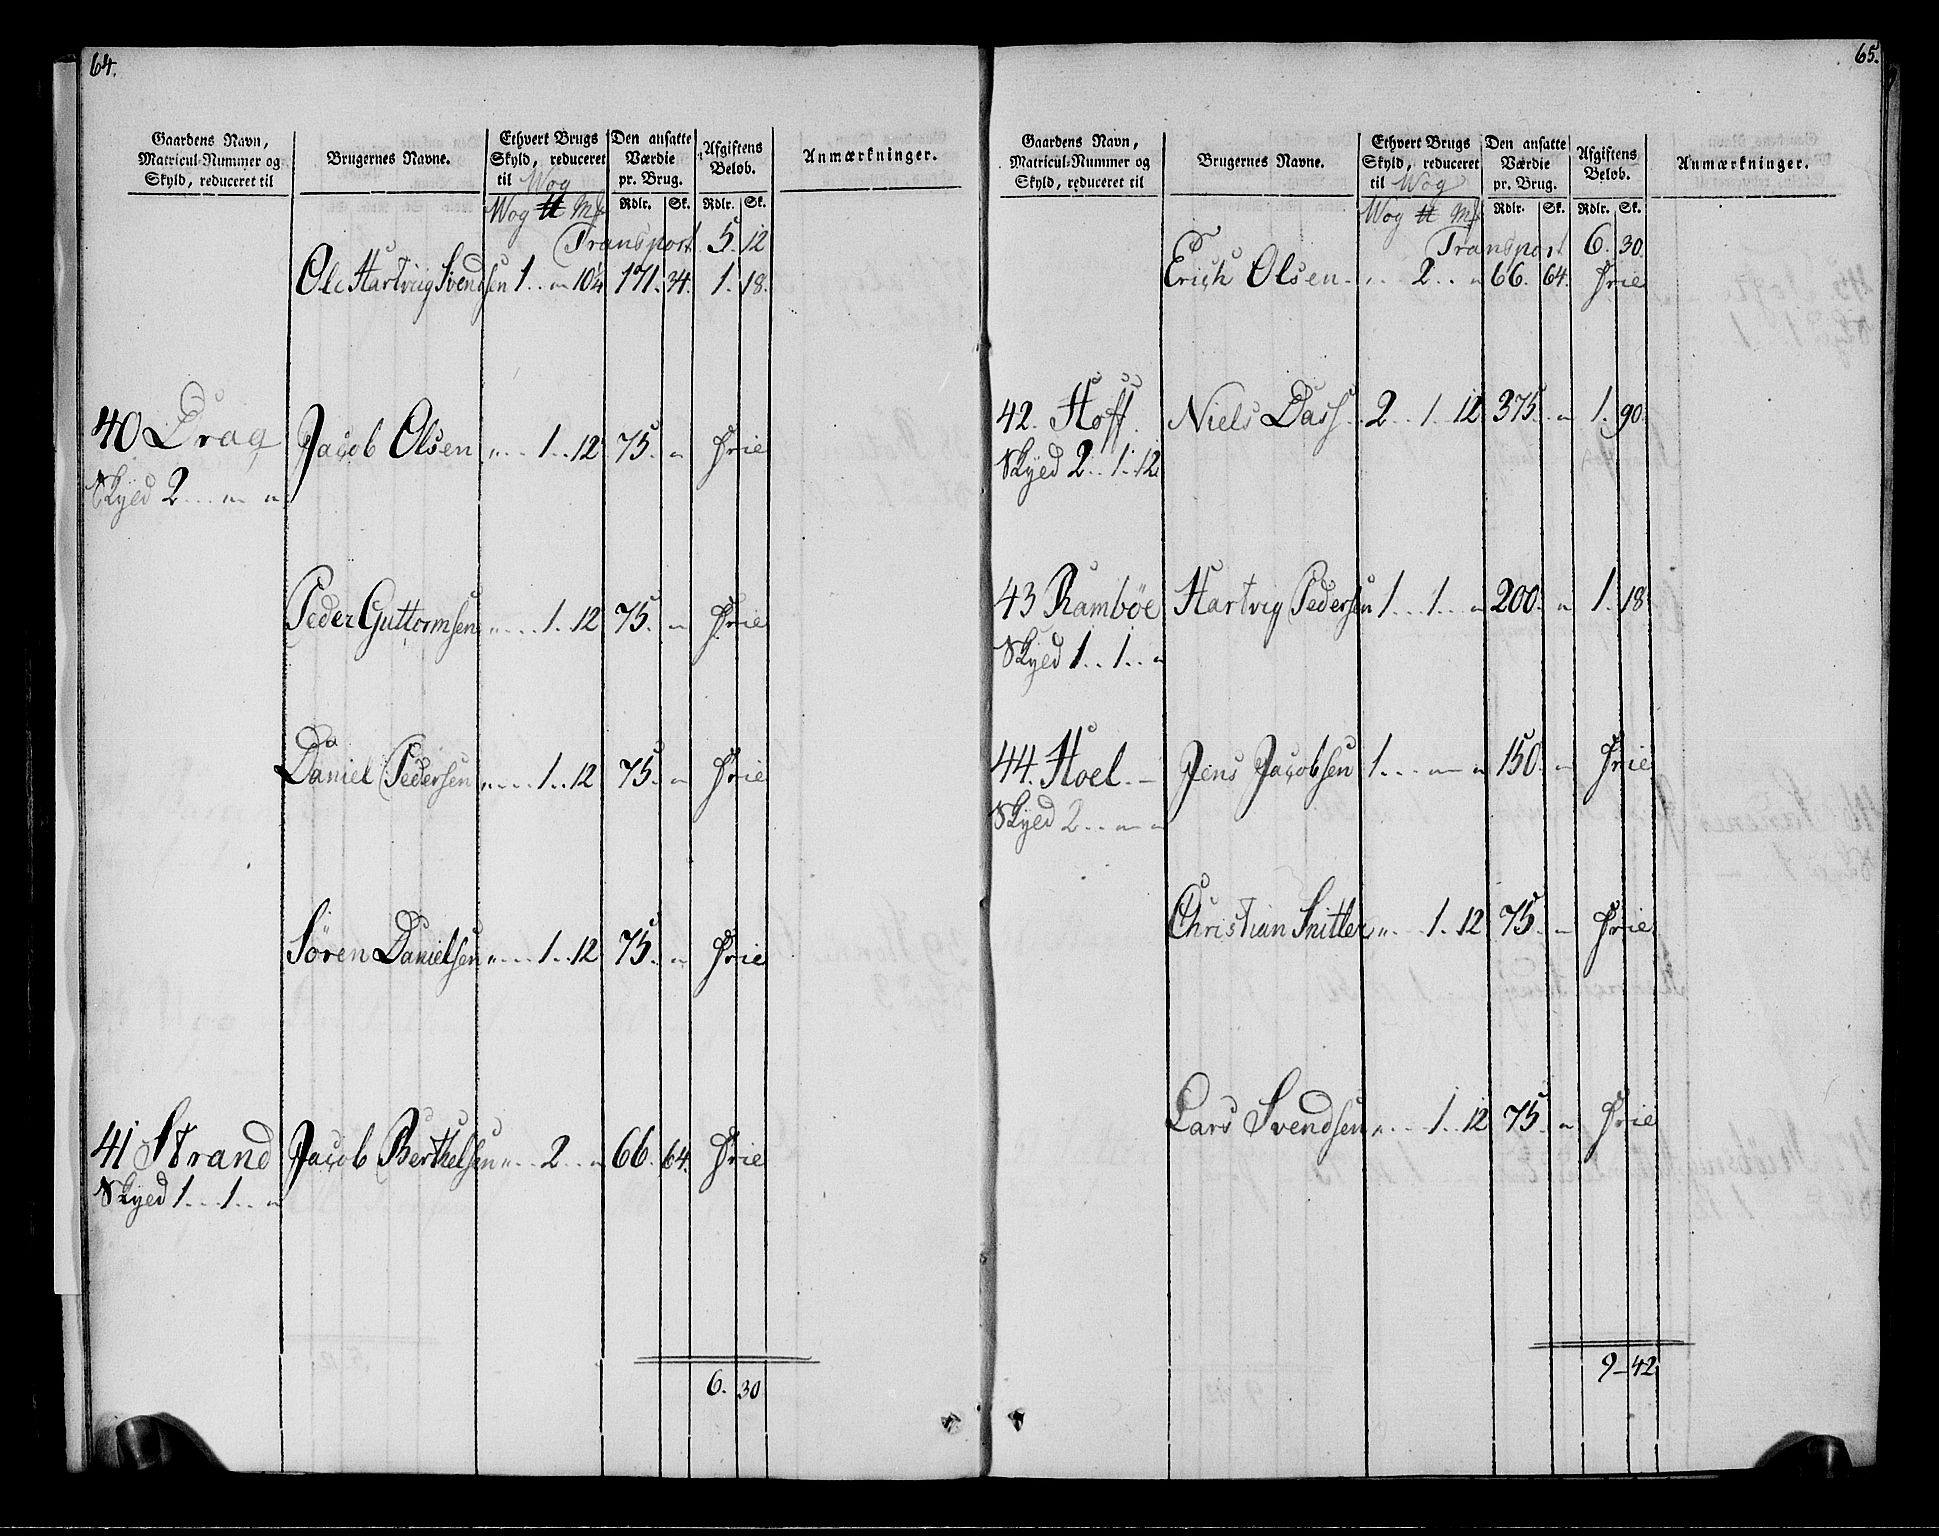 64.
Gaardens Navn, Matricul-Nummer og Skyld, reduceret til
Brugernes Navne.
Ethvert Brugs Skyld, reduceret til Wog
Den ansatte Værdie pr. Brug.
Afgiftens Beløb.
Anmærkninger.
Wog ℔ Mk Rdlr. Sk. Rdlr. Sk.
Transport 5. 12
Ole Hartvig Svendsen 1 .. „ 10¼ 171. 34. 1. 18.
40 Drag Jacob Olsen „ .. 1 .. 12 75. „ Frie
Skyed 2 ... „ „
Peder Guttormsen „ ... 1. 12 75. „ Frie
Daniel Pedersen „ ... 1 .. 12 75. „ Frie
Sören Danielsen „ ... 1 .. 12 75. „ Frie
41 Strand Jacob Berthelsen „ .. 2 .. „ 66. 64. Frie
Skyed 1 ... 1 .. „
6. 30
65.
Gaardens Navn, Matricul-Nummer og Skyld, reduceret til
Brugernes Navne.
Ethvert Brugs Skyld, reduceret til Wog
Den ansatte Værdie pr. Brug.
Afgiftens Beløb.
Anmærkninger.
Wog ℔ Mk Rdlr. Sk. Rdlr. Sk.
Transport 6. 30
Erich Olsen . .. 2 .. „ 66. 64. Frie
42. Hoff. Niels Dass. 2 .. 1. 12 375. „ 1. 90.
Skyed 2 .. 1. 12
43 Ramböe Hartvig Pedersen 1 ... 1 .. „ 200. „ 1. 18
Skyed 1 .. 1 .. „
44. Hoel. Jens Jacobsen 1 ... „ „ 150. „ Frie
Skyed 2 .. „ „
Christian Snitler „ ... 1. 12 75. „ Frie
Lars Svendsen „ ... 1 .. 12 75. „ Frie
9 - 42